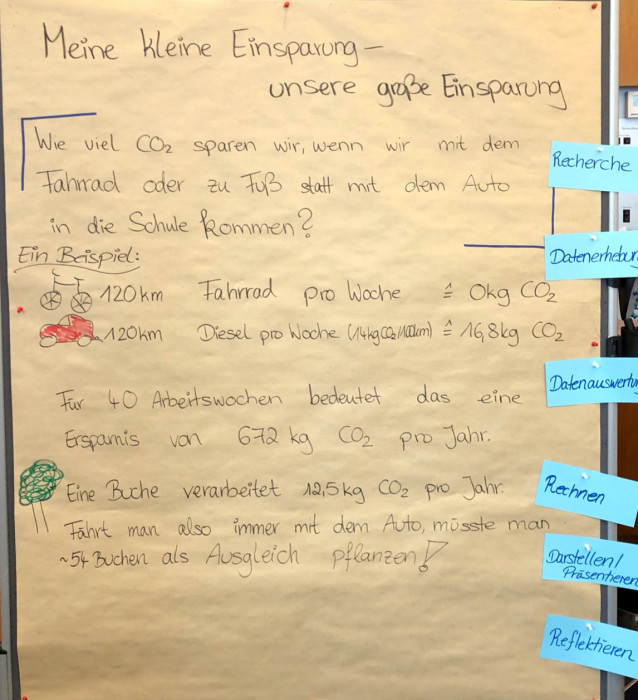 Meine kleine Einsparung –
unsere große Einsparung
Wie viel CO₂ sparen wir, wenn wir mit dem
Fahrrad oder zu Fuß statt mit dem Auto
in die Schule kommen?
Ein Beispiel:
120km Fahrrad pro Woche ≙ 0kg CO₂
120km Diesel pro Woche (14kg CO₂/100km) ≙ 16,8kg CO₂
Für 40 Arbeitswochen bedeutet das eine
Ersparnis von 672 kg CO₂ pro Jahr.
Eine Buche verarbeitet 12,5kg CO₂ pro Jahr.
Fährt man also immer mit dem Auto, müsste man
~54 Buchen als Ausgleich pflanzen!
Recherche
Datenerhebun
Datenauswertu
Rechnen
Darstellen/
Präsentieren
Reflektieren